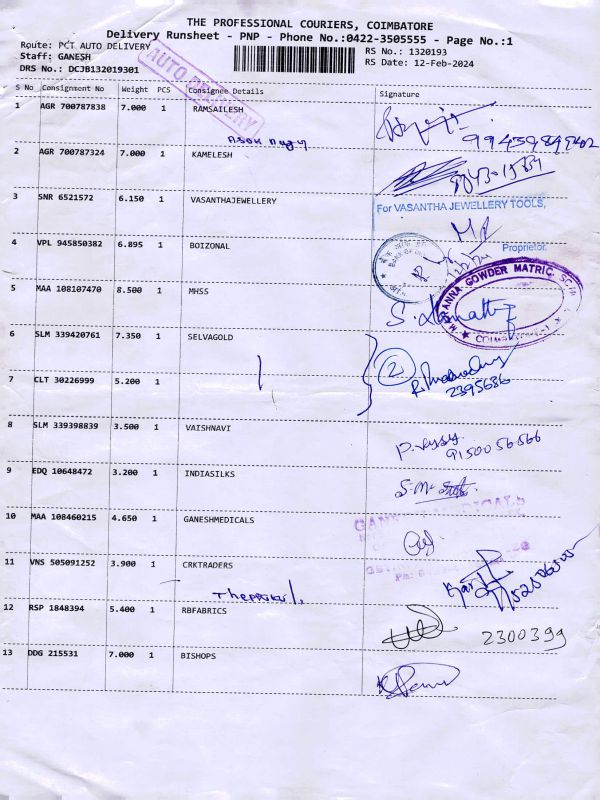 THE PROFESSIONAL COURIERS, COIMBATORE
Delivery Runsheet - PNP - Phone No.:0422-3505555 - Page No.:1
Route: PCT AUTO DELIVERY
Staff: GANESH
DRS No.: DCJB132019301
RS No.: 1320193
RS Date: 12-Feb-2024
AUTO DELIVERY
S No Consignment No Weight PCS Consignee Details Signature
1 AGR 700787838 7.000 1 RAMSAILESH
2 AGR 700787324 7.000 1 KAMELESH
3 SNR 6521572 6.150 1 VASANTHAJEWELLERY
For VASANTHA JEWELLERY TOOLS,
Proprietor.
4 VPL 945850382 6.895 1 BOIZONAL
5 MAA 108107470 8.500 1 MHSS
GOWDER MATRIC. SCH
6 SLM 339420761 7.350 1 SELVAGOLD
2
2395636
7 CLT 30226999 5.200 1
8 SLM 339398839 3.500 1 VAISHNAVI
9150056566
9 EDQ 10648472 3.200 1 INDIASILKS
10 MAA 108460215 4.650 1 GANESHMEDICALS
11 VNS 505091252 3.900 1 CRKTRADERS
12 RSP 1848394 5.400 1 RBFABRICS
2300399
13 DDG 215531 7.000 1 BISHOPS